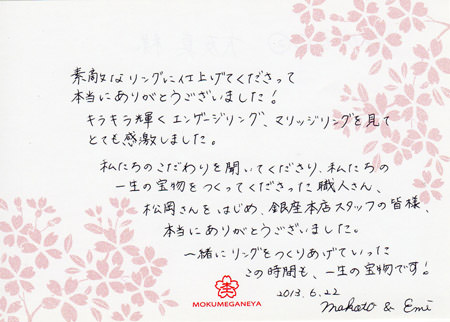 素敵なリングに仕上げてくださって
本当にありがとうございました!
キラキラ輝くエンゲージリング、マリッジリングを見て
とても感激しました。
私たちのこだわりを聞いてくださり、私たちの
一生の宝物をつくってくださった職人さん、
松岡さんをはじめ、銀座本店スタッフの皆様、
本当にありがとうございました。
一緒にリングをつくりあげていった
この時間も、一生の宝物です!
2013.6.22
Makoto & Emi
MOKUMEGANEYA